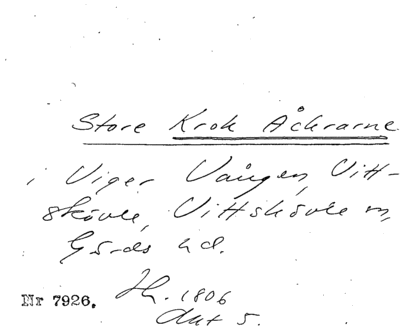 Store Krok Åkrarne
i Viger Vången, Vitt-
skövle, Vittskövle sn,
Gärds hd.
Nr 7926. Jh. 1806
Akt 5.